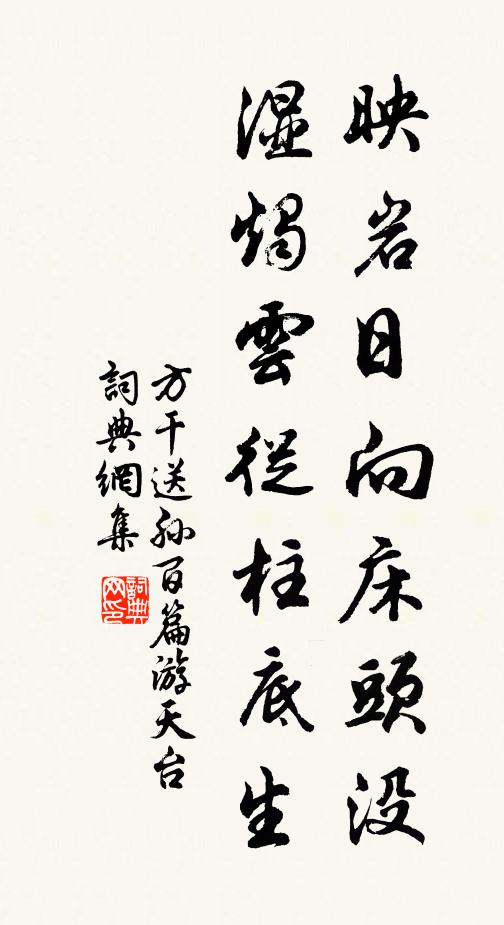 映岩日向床頭没
湿燭雲從柱底生
方干送孙百篇游天台
詞典網集
詞典网印